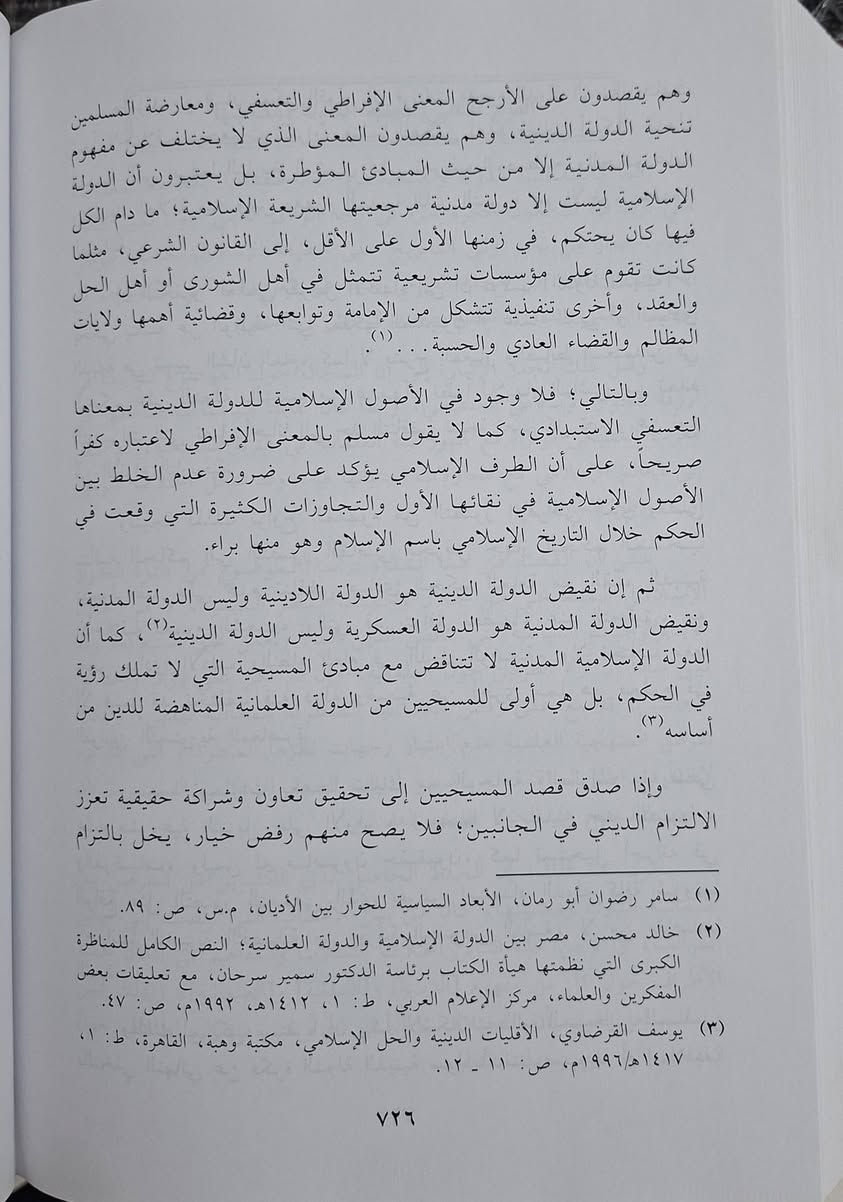 وهم يقصدون على الأرجح المعنى الإفراطي والتعسفي، ومعارضة المسلمين
تنحية الدولة الدينية، وهم يقصدون المعنى الذي لا يختلف عن مفهوم
الدولة المدنية إلا من حيث المبادئ المؤطرة، بل يعتبرون أن الدولة
الإسلامية ليست إلا دولة مدنية مرجعيتها الشريعة الإسلامية؛ ما دام الكل
فيها كان يحتكم، في زمنها الأول على الأقل، إلى القانون الشرعي، مثلما
كانت تقوم على مؤسسات تشريعية تتمثل في أهل الشورى أو أهل الحل
والعقد، وأخرى تنفيذية تتشكل من الإمامة وتوابعها، وقضائية أهمها ولايات
المظالم والقضاء العادي والحسبة...(١).
وبالتالي؛ فلا وجود في الأصول الإسلامية للدولة الدينية بمعناها
التعسفي الاستبدادي، كما لا يقول مسلم بالمعنى الإفراطي لاعتباره كفراً
صريحاً، على أن الطرف الإسلامي يؤكد على ضرورة عدم الخلط بين
الأصول الإسلامية في نقائها الأول والتجاوزات الكثيرة التي وقعت في
الحكم خلال التاريخ الإسلامي باسم الإسلام وهو منها براء.
ثم إن نقيض الدولة الدينية هو الدولة اللادينية وليس الدولة المدنية،
ونقيض الدولة المدنية هو الدولة العسكرية وليس الدولة الدينية(٢)، كما أن
الدولة الإسلامية المدنية لا تتناقض مع مبادئ المسيحية التي لا تملك رؤية
في الحكم، بل هي أولى للمسيحيين من الدولة العلمانية المناهضة للدين من
أساسه(٣).
وإذا صدق قصد المسيحيين إلى تحقيق تعاون وشراكة حقيقية تعزز
الالتزام الديني في الجانبين؛ فلا يصح منهم رفض خيار، يخل بالتزام
(١) سامر رضوان أبو رمان، الأبعاد السياسية للحوار بين الأديان، م.س، ص: ٨٩.
(٢) خالد محسن، مصر بين الدولة الإسلامية والدولة العلمانية؛ النص الكامل للمناظرة
الكبرى التي نظمتها هيأة الكتاب برئاسة الدكتور سمير سرحان، مع تعليقات بعض
المفكرين والعلماء، مركز الإعلام العربي، ط: ١، ١٤١٢هـ، ١٩٩٢م، ص: ٤٧.
(٣) يوسف القرضاوي، الأقليات الدينية والحل الإسلامي، مكتبة وهبة، القاهرة، ط: ١،
١٤١٧هـ/١٩٩٦م، ص: ١١ - ١٢.
٧٢٦